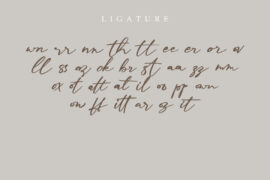 LIGATURE
wn rr nn th tt ee er or
ll ss az ok br st aa zz mm
ex ot att at il os pp wn
ow ff itt ar it